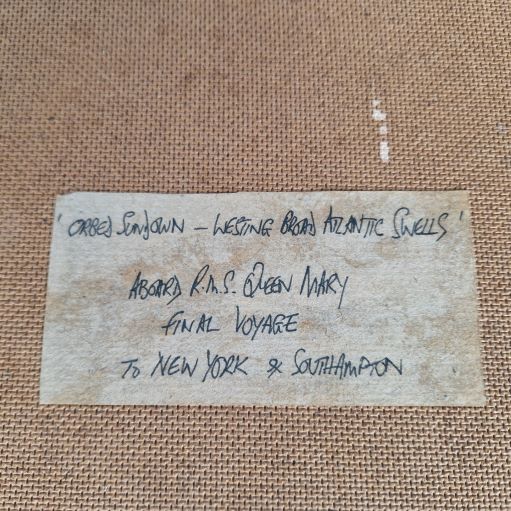 'ORBED SUNDOWN - WESTING BROAD ATLANTIC SWELLS'
ABOARD R.M.S. QUEEN MARY
FINAL VOYAGE
TO NEW YORK & SOUTHAMPTON